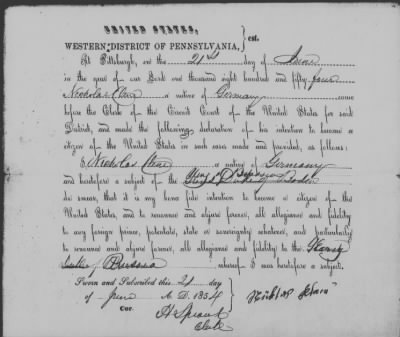 UNITED STATES,
WESTERN DISTRICT OF PENNSYLVANIA, } sct.
At Pittsburgh, on the 21st day of June
in the year of our Lord one thousand eight hundred and fifty four
Nicholas a native of Germany came
before the Clerk of the Circuit Court of the United States for said
District, and made the following declaration of his intention to become a
citizen of the United States in such cases made and provided, as follows:
I, Nicholas a native of Germany
and heretofore a subject of the
do swear, that it is my bona fide intention to become a citizen of the
United States, and to renounce and abjure forever, all allegiance and fidelity
to any foreign prince, potentate, state or sovereignty whatever, and particularly
to renounce and abjure forever, all allegiance and fidelity to the
of whereof I was heretofore a subject.
Sworn and Subscribed this 21 day
of June A. D. 1854
Cor. H Sproul
Clk